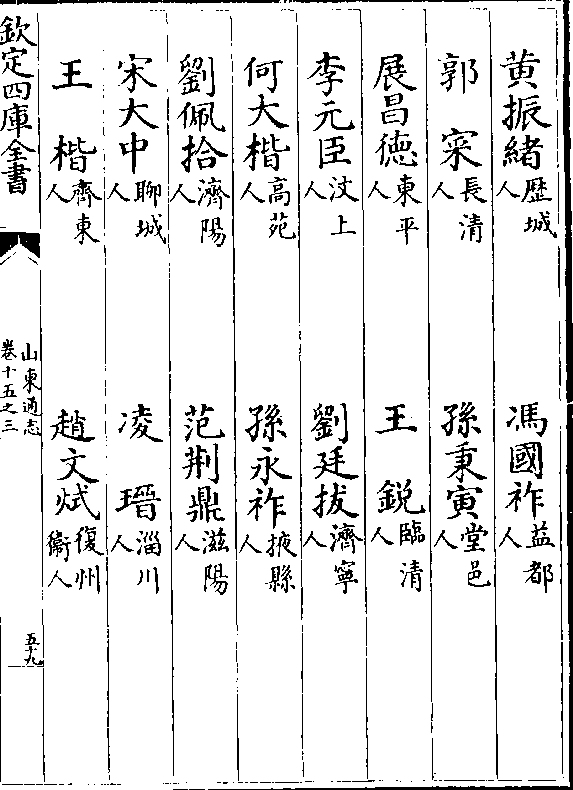 黄振緒歴城人　馮國祚益都人
郭寀長清人　孫秉寅堂邑人
展昌徳東平人　王鋭臨清人
李元臣汶上人　劉廷拔濟寧人
何大楷高苑人　孫永祚掖縣人
劉佩拾濟陽人　范荆鼎滋陽人
宋大中聊城人　凌瑨淄川人
王楷齊東人　趙文烒復州衞人
欽定四庫全書
山東通志
卷十五之三
五十九